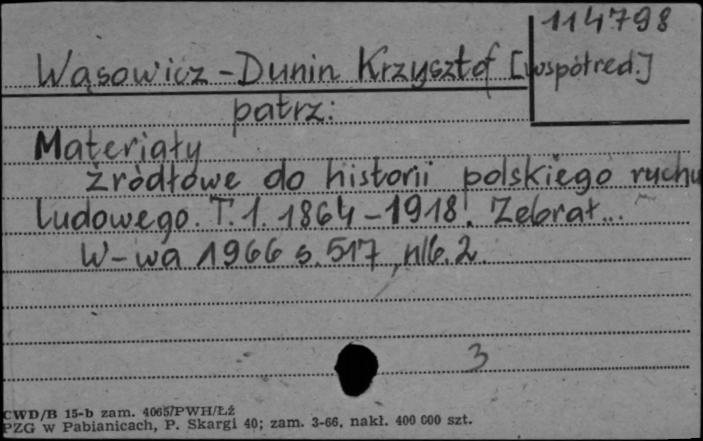 114798
Wąsowicz-Dunin Krzysztof [współred.]
patrz:
Materiały
źródłowe do historii polskiego ruchu
ludowego. T. 1. 1864-1918. Zebrał...
W-wa 1966 s. 517, nlb. 2.
3
CWD/B 15-b zam. 4065/PWH/Łź
PZG w Pabianicach, P. Skargi 40; zam. 3-66, nakł. 400 000 szt.